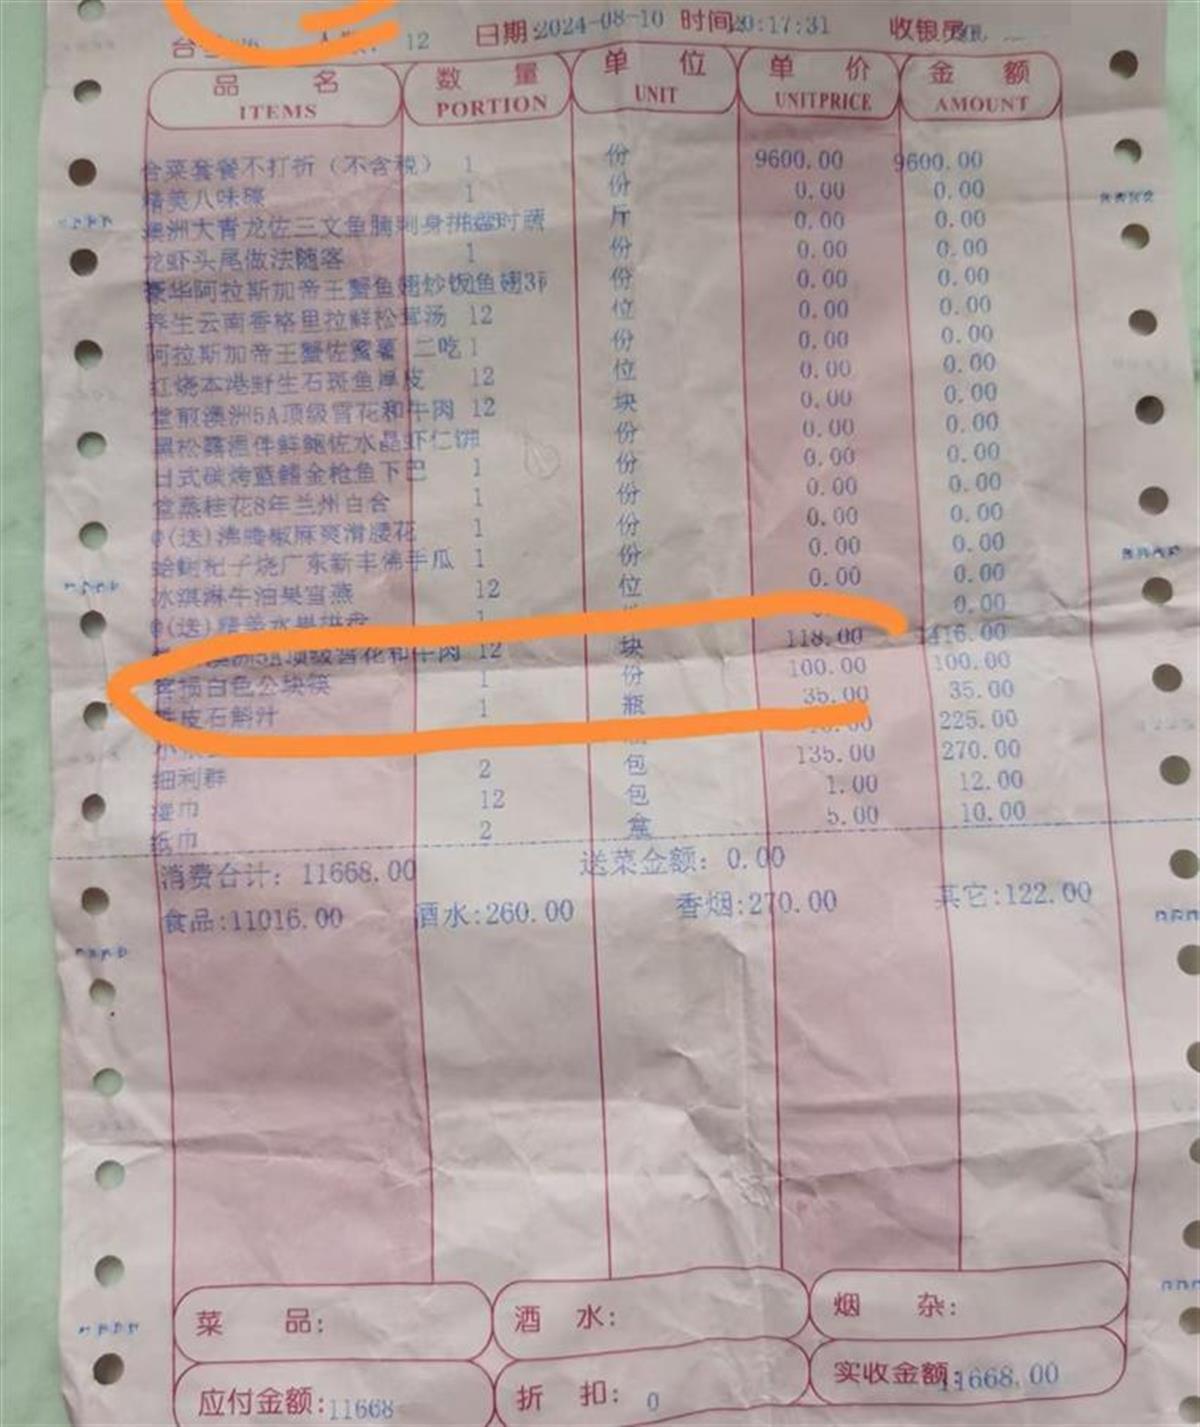 12 日期:2024-08-10 时间:20:17:31 收银员
品名 数量 单位 单价 金额
ITEMS PORTION UNIT UNITPRICE AMOUNT
合菜套餐不打折（不含税） 1 份 9600.00 9600.00
精美八味碟 1 份 0.00 0.00
澳洲大青龙佐三文鱼腩刺身拼盘时蔬 斤 0.00 0.00
龙虾头尾做法随客 1 份 0.00 0.00
豪华阿拉斯加帝王蟹鱼翅炒饭鱼翅3 份 0.00 0.00
养生云南香格里拉鲜松茸汤 12 位 0.00 0.00
阿拉斯加帝王蟹佐蜜薯 二吃 1 份 0.00 0.00
红烧本港野生石斑鱼厚皮 12 位 0.00 0.00
堂煎澳洲5A顶级雪花和牛肉 12 块 0.00 0.00
黑松露温伴鲜鲍佐水晶虾仁饼 份 0.00 0.00
日式碳烤蓝鳍金枪鱼下巴 1 份 0.00 0.00
堂蒸桂花8年兰州百合 1 份 0.00 0.00
@(送)沸腾椒麻爽滑腰花 1 份 0.00 0.00
杞子烧广东新丰佛手瓜 1 份 0.00 0.00
冰淇淋牛油果雪燕 12 位 0.00 0.00
@(送)精美水果拼盘 1 0.00
澳洲5A顶级雪花和牛肉 12 块 118.00 1416.00
客损白色公块筷 1 份 100.00 100.00
铁皮石斛汁 1 瓶 35.00 35.00
225.00
细利群 2 包 135.00 270.00
湿巾 12 包 1.00 12.00
纸巾 2 盒 5.00 10.00
消费合计: 11668.00 送菜金额: 0.00
食品:11016.00 酒水:260.00 香烟:270.00 其它:122.00
菜品: 酒水: 烟杂:
应付金额:11668 折扣: 0 实收金额:11668.00